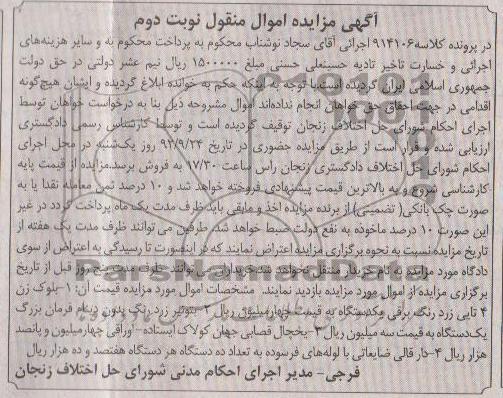 آگهی مزایده اموال منقول نوبت دوم
در پرونده کلاسه ۹۱۴۱۰۶ اجرائی آقای سجاد نوشتاب محکوم به پرداخت محکوم به و سایر هزینه‌های
اجرائی و خسارت تاخیر تادیه حسنعلی حسنی مبلغ ۱۵۰۰۰۰۰ ریال نیم عشر دولتی در حق دولت
جمهوری اسلامی ایران گردیده است با توجه به اینکه حکم به خوانده ابلاغ گردیده و ایشان هیچ‌گونه
اقدامی در جهت احقاق حق خواهان انجام نداده‌اند اموال مشروحه ذیل بنا به درخواست خواهان توسط
اجرای احکام شورای حل اختلاف زنجان توقیف گردیده است و توسط کارشناس رسمی دادگستری
ارزیابی شده و قرار است از طریق مزایده حضوری در تاریخ ۹۲/۹/۲۴ روز یک‌شنبه در محل اجرای
احکام شورای حل اختلاف دادگستری زنجان راس ساعت ۱۷/۳۰ به فروش برسد.مزایده از قیمت پایه
کارشناسی شروع و به بالاترین قیمت پیشنهادی فروخته خواهد شد و ۱۰ درصد ثمن معامله نقدا یا به
صورت چک بانکی( تضمینی) از برنده مزایده اخذ و مابقی باید ظرف مدت یک ماه پرداخت گردد در غیر
این صورت ۱۰ درصد ماخوذه به نفع دولت ضبط خواهد شد. طرفین می توانند ظرف مدت یک هفته از
تاریخ مزایده نسبت به نحوه برگزاری مزایده اعتراض نمایند که در اینصورت تا رسیدگی به اعتراض از سوی
دادگاه مورد مزایده به نام خریدار منتقل نخواهد شد خریداران می توانند ظرف مدت پنج روز قبل از تاریخ
برگزاری مزایده از اموال مورد مزایده بازدید نمایند. مشخصات اموال مورد مزایده قیمت آن: ۱-بلوک زن
۴ تایی زرد رنگ برقی یکدستگاه به قیمت چهارمیلیون ریال ۲- زرد رنگ بدون دینام فرمان بزرگ
یک‌دستگاه به قیمت سه میلیون ریال ۳-یخچال قصابی جهان کولاک ایستاده-اوراقی چهارمیلیون و پانصد
هزار ریال ۴-دار قالی ضایعاتی با لوله‌های فرسوده به تعداد ده دستگاه هر دستگاه هفتصد و ده هزار ریال
فرجی- مدیر اجرای احکام مدنی شورای حل اختلاف زنجان